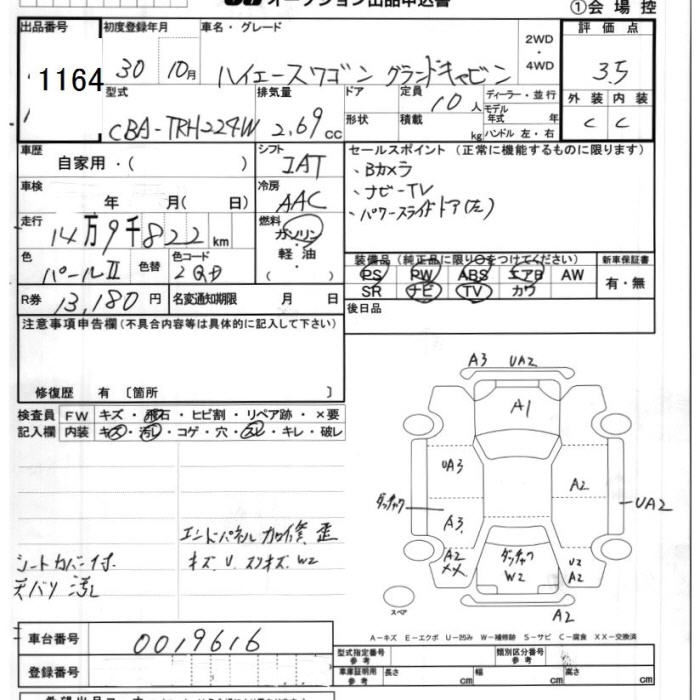 オークション出品申込書
①会場控
出品番号 初度登録年月 車名・グレード 2WD・4WD 評価点
1164 30 10月 ハイエースワゴン グランドキャビン 3.5
型式 排気量 ドア 定員 10人 ディーラー・並行 外装 内装
CBA-TRH224W 2.69cc 形状 積載 kg モデル年式 年 ハンドル 左・右 C C
車歴 自家用・( ) シフト IAT セールスポイント (正常に機能するものに限ります)
車検 年 月( 日) 冷房 AAC
・Bカメラ
・ナビーTV
・パワースライドドア(左)
走行 14万9千822km 燃料 ガソリン・軽油・( )
色 パールII 色替 色コード
装備品 (純正品に限り○をつけてください) 新車保証書
PS PW ABS エアB AW 有・無
SR ナビ TV カワ
R券 13,180円 名変通知期限 月 日 後日品
注意事項申告欄(不具合内容等は具体的に記入して下さい)
修復歴 有 〔箇所 〕
検査員 FW キズ・飛石・ヒビ割・リペア跡・×要
記入欄 内装 キズ・汚レ・コゲ・穴・スレ・キレ・破レ
A3 UA2
A1
UA3
A2
ダッチャク
UA2
A3
A2
XX
ダッチャク
W2
U2
A2
A2
スペア
エンドパネル加修 歪
キズ、U、スリキズ、W2
シートカバー付
天バリ汚レ
A-キズ E-エクボ U-凹み W-補修跡 S-サビ C-腐食 XX-交換済
車台番号 0019616
型式指定番号 参考 類別区分番号 参考
登録番号
車庫証明用 参考 長さ cm 幅 cm 高さ cm
希望出品コーナー